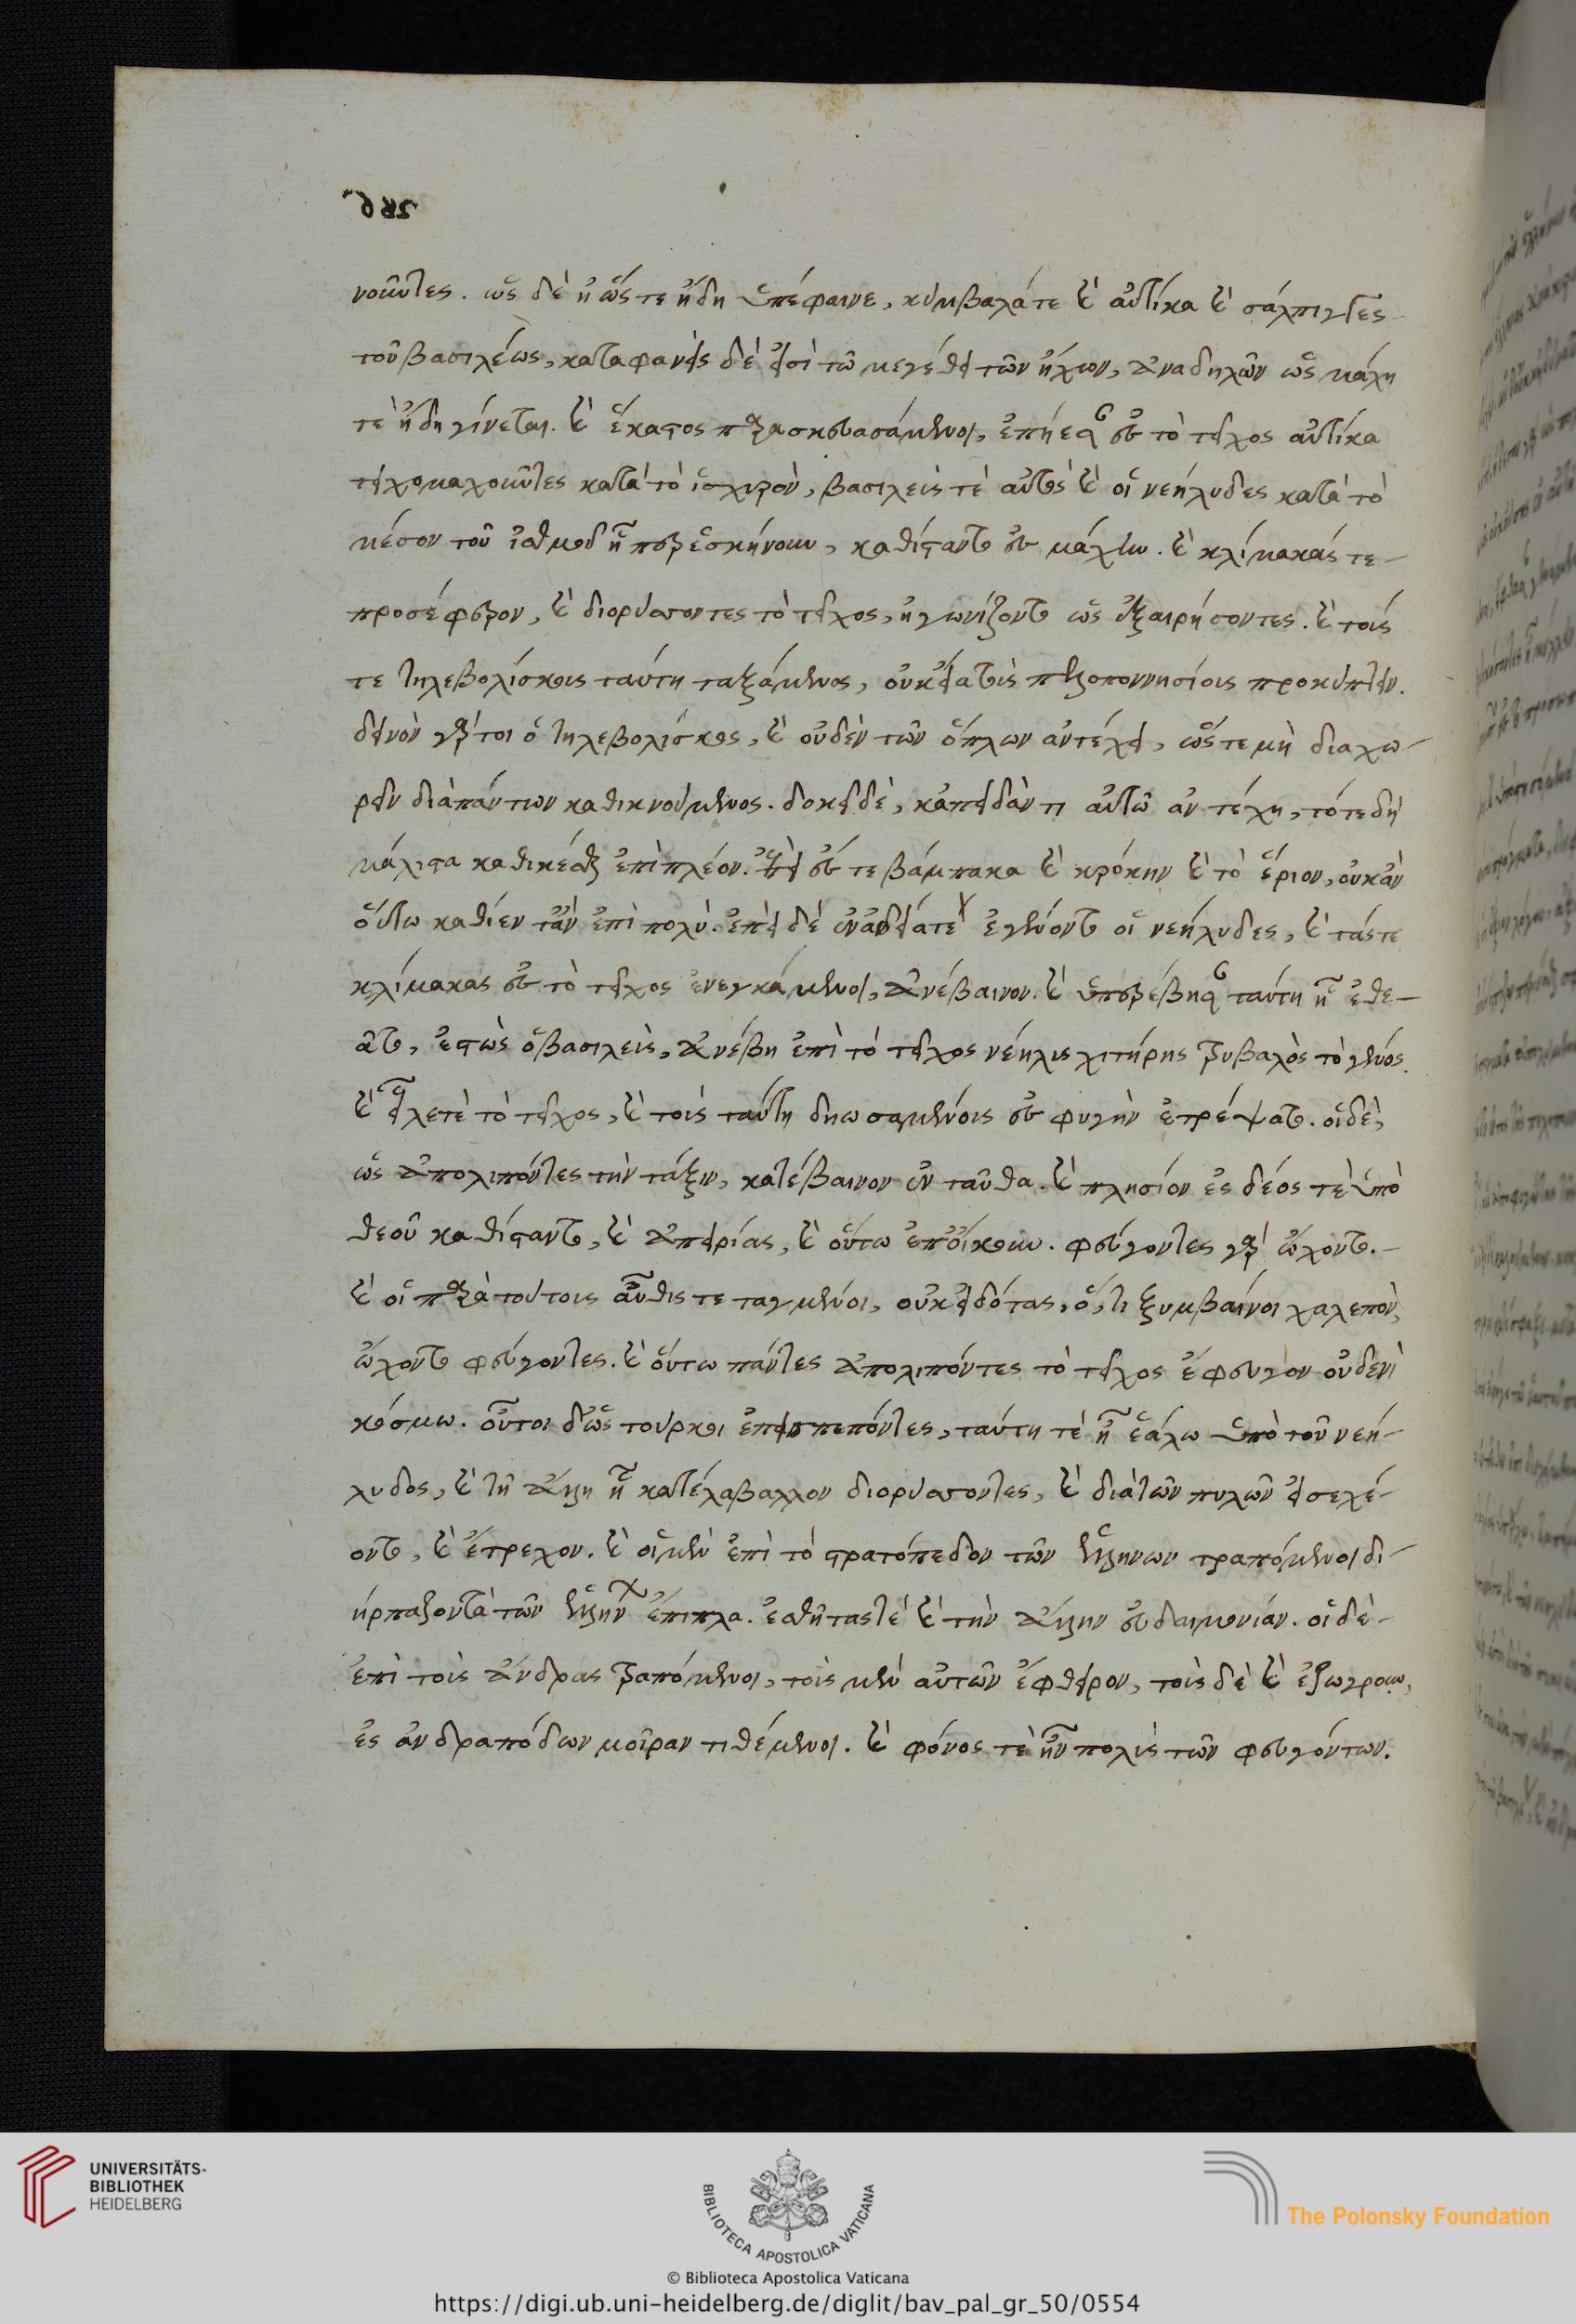 νοοῦντες. ὡς δὲ ἡ ἕως τε ἤδη ὑπέφαινε, κύμβαλά τε καὶ αὐτίκα καὶ σάλπιγγες
τοῦ βασιλέως, καταφανεῖς δέ εἰσὶ τῶ μεγέθει τῶν ἤχων, ἀναδηλῶν ὡς μάχη
τὲ ἤδη γίνεται. καὶ ἕκαστος παρασκευασάμενοι, ἐπήεσαν εἰς τὸ τεῖχος αὐτίκα
τειχομαχοῦντες κατὰ τὸ ἰσχυρὸν, βασιλεὺς τὲ αὐτὸς καὶ οἱ νεήλυδες κατὰ τὸ
μέσον τοῦ ἰσθμοῦ ᾗ περ ἐσκήνουν, καθίσταντο εἰς μάχην. καὶ κλίμακάς τε
προσέφερον, καὶ διορύσσοντες τὸ τεῖχος, ἠγωνίζοντο ὡς ἐξαιρήσοντες. καὶ τοῖς
τε τηλεβολίσκοις ταύτη ταξάμενος, οὐκ εἴα τοὺς πελοποννησίους προκύπτειν.
δεινὸν γάρ τοι ὁ τηλεβολίσκος, καὶ οὐδὲν τῶν ὅπλων ἀντέχει, ὥστε μὴ διαχω-
ρεῖν διὰ πάντων καθικνούμενος. δοκεῖ δὲ, κἀπειδάν τι αὐτῶ ἀντέχη, τότε δὴ
μάλιστα καθικέσθαι ἐπὶ πλέον. ἐπεὶ εἴς τε βάμπακα καὶ κρόκην καὶ τὸ ἔριον, οὐκ ἂν
οὕτω καθίεντ' ἂν ἐπὶ πολύ. ἐπεὶ δὲ ἐγένοντο οἱ νεήλυδες, καὶ τάς τε
κλίμακας εἰς τὸ τεῖχος ἐνεγκάμενοι, ἀνέβαινον. καὶ ὑπερέβησαν ταύτη ᾗ ἐθε-
ᾶτο, ἑστὼς ὁ βασιλεὺς, ἀνέβη ἐπὶ τὸ τεῖχος νέηλυς χιτήρης τριβαλὸς τὸ γένος.
καὶ εἷλε τὲ τὸ τεῖχος, καὶ τοὺς ταύτη δηωσαμένους εἰς φυγὴν ἐτρέψατο. οἱ δὲ,
ὡς ἀπολιπόντες τὴν τάξιν, κατέβαινον ἐνταῦθα. καὶ πλησίον ἐς δέος τὲ ὑπὸ
θεοῦ καθίσταντο, καὶ ἀπειρίας, καὶ οὕτω ἐποίκουν. φεύγοντες γὰρ ᾤχοντο.
καὶ οἱ παρὰ τούτοις αὖθις τεταγμένοι, οὐκ εἰδότας, ὅ,τι ξυμβαίνοι χαλεπὸν,
ᾤχοντο φεύγοντες. καὶ οὕτω πάντες ἀπολιπόντες τὸ τεῖχος ἔφευγον οὐδενὶ
κόσμω. οὗτοι δ' ὡς τοῦρκοι ἐπεισπεσόντες, ταύτη τὲ ᾗ ἑάλω ὑπὸ τοῦ νεή-
λυδος, καὶ τῆ ἄλλη ᾗ κατέλαβαλλον διορύσσοντες, καὶ διὰ τῶν πυλῶν εἰσεχέ-
οντο, καὶ ἔτρεχον. καὶ οἱ μὲν ἐπὶ τὸ στρατόπεδον τῶν ἑλλήνων τραπόμενοι δι-
ήρπαζον τὰ τῶν ἑλλήνων ἔπιπλα. ἐσθῆτας τὲ καὶ τὴν ἄλλην εὐδαιμονίαν. οἱ δὲ
ἐπὶ τοὺς ἄνδρας τραπόμενοι, τοὺς μὲν αὐτῶν ἔφθειρον, τοὺς δὲ καὶ ἐζώγρουν,
ἐς ἀνδραπόδων μοῖραν τιθέμενοι. καὶ φόνος τὲ ἦν πολὺς τῶν φευγόντων.
UNIVERSITÄTS-
BIBLIOTHEK
HEIDELBERG
BIBLIOTECA APOSTOLICA VATICANA
The Polonsky Foundation
© Biblioteca Apostolica Vaticana
https://digi.ub.uni-heidelberg.de/diglit/bav_pal_gr_50/0554